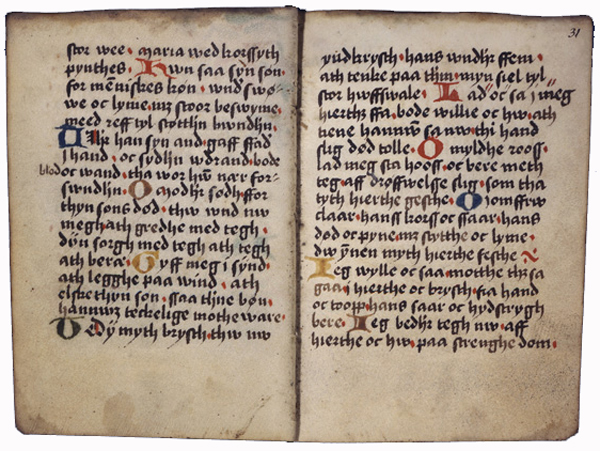 stor wee · maria wed korssyth
pynthes. Hwn saa syn søn·
for mēniskes køn · wnd swø=
we oc lyme mz stoor beswyme.
meed reff tyl støttlin bwndhin.
han syn and gaff ffad
j hand · oc sydhn wdrand · bode
blod
oc wand · tha wor hw̄ nær for=
swndhin · O modhr sødh · ffor
thyn søns død · thw wnd nw
megh ath gredhe med tegh ·
dyn sorgh med tegh ath tegh
ath beræ · Gyff meg i synd·
ath legghe paa wind · ath
elskethyn søn · ssaa thine bøn·
hannwz teckelige motheware·
myth brysch · thw nw
31
hans wndhr ffem·
ath tenke paa thim · myn siel tyl
stor hwffswale · Lad oc sa i meg
hierthz ffa · bode willie oc hw · ath
tiene hannwm sa nw · thi hand
slig død tolle · O myldhe rooss·
lad meg sta hooss · oc bere meth
teg · aff drøffwelse slig · som tha
tyth hierthe gesche · O iomffrw
claar · hanss korss oc ssaar · hans
død oc pyne mz stytthe oc lyme ·
dw ynen myth hierthe fesche ·
Ieg wylle oc saa motthe thz sa
gaa i hierthe oc brysch · fra hand
oc toopp · hans saar oc hydstrygh
bere · Ieg bedhr tegh nw · aff
hierthe oc hw · paa strenghe dom·